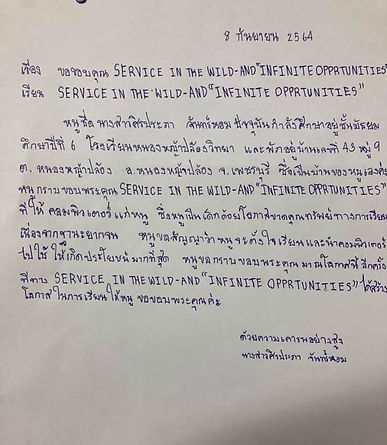 8 กันยายน 2564
เรื่อง ขอขอบคุณ SERVICE IN THE WILD-AND "INFINITE OPPRTUNITIES"
เรียน SERVICE IN THE WILD-AND "INFINITE OPPRTUNITIES"
หนูชื่อ นางสาวศิรประภา จันทร์หอม ปัจจุบัน กำลังศึกษาอยู่ชั้นมัธยม
ศึกษาปีที่ 6 โรงเรียนหนองหญ้าปล้องวิทยา และพักอาศัยอยู่บ้านเลขที่ 43 หมู่ 9
ต. หนองหญ้าปล้อง อ.หนองหญ้าปล้อง จ.เพชรบุรี ซึ่งเป็นบ้านของหนูเองค่ะ
หนูกราบขอบพระคุณ SERVICE IN THE WILD-AND "INFINITE OPPRTUNITIES"
ที่ให้ คอมพิวเตอร์ แก่หนู ซึ่งหนูเป็นเด็กด้อยโอกาสขาดทุนทรัพย์ทางการเรียน
เนื่องจากฐานะยากจน หนูขอสัญญาว่า หนูจะตั้งใจเรียน และนำคอมพิวเตอร์
ไปใช้ ให้เกิดประโยชน์มากที่สุด หนูขอกราบขอบพระคุณ มา ณ โอกาสนี้ อีกครั้ง
ที่ทาง SERVICE IN THE WILD-AND "INFINITE OPPRTUNITIES" ได้สร้าง
โอกาสในการเรียนให้หนู ขอขอบพระคุณค่ะ
ด้วยความเคารพอย่างสูง
นางสาวศิรประภา จันทร์หอม